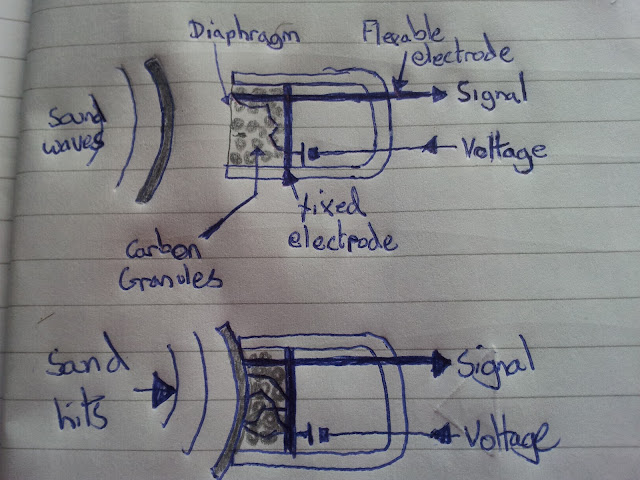 Diaphragm
Flexable
electrode
Sound
waves
Signal
Voltage
fixed
electrode
Carbon
Granules
Sand
hits
Signal
Voltage